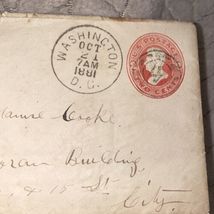 WASHINGTON
OCT
21
7AM
1881
D. C.
U.S. POSTAGE
TWO CENTS
Cooke
Building
& 15 St
City